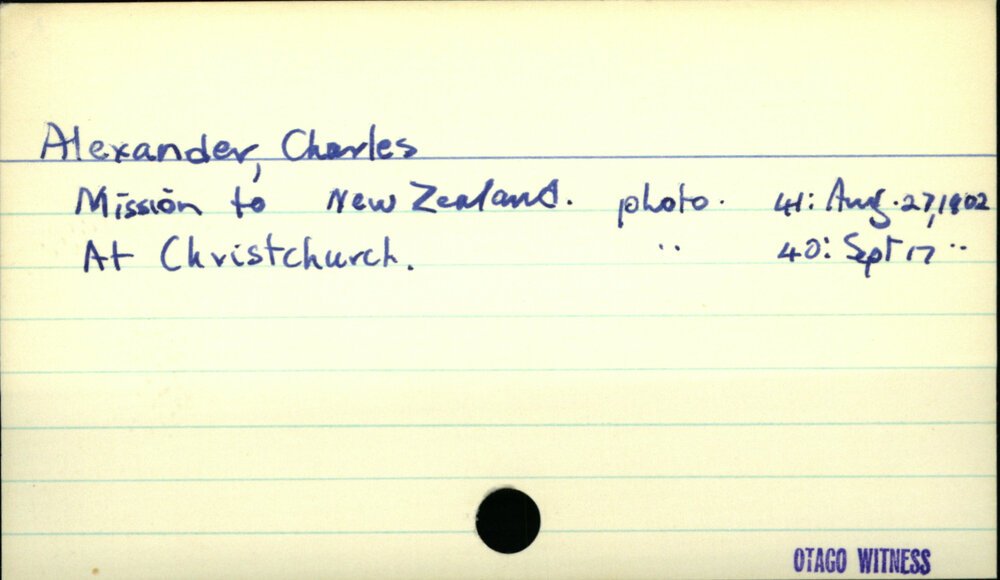 Alexander, Charles
Mission to New Zealand. photo. 41: Aug. 27, 1902
At Christchurch. " 40: Sept 17 "
OTAGO WITNESS